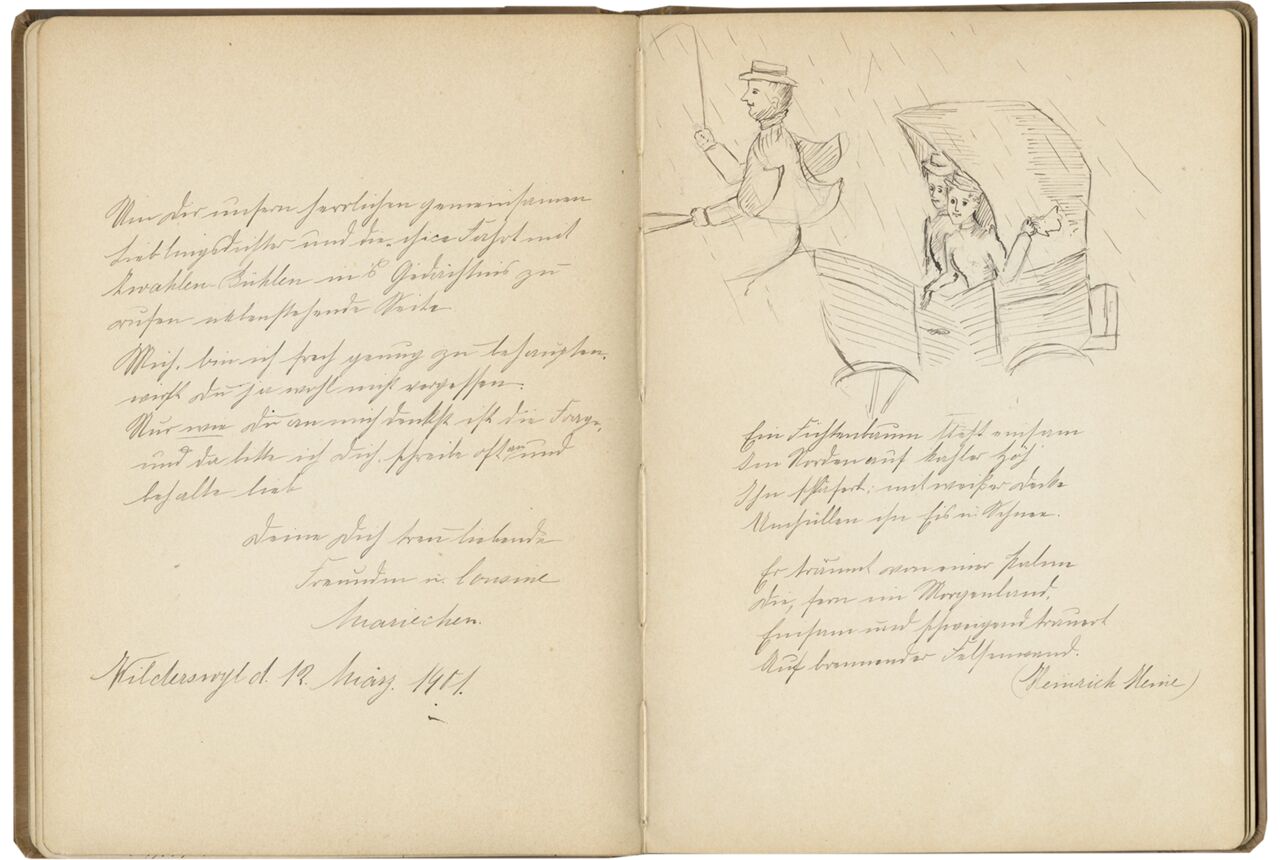 Um Dir unsern herrlichen gemeinsamen
Lieblingsdichter und die chice Fahrt mit
in's Gedächtnis zu
rufen nebenstehende Seite.
Mich, bin ich frech genug zu behaupten,
wirst Du ja wohl nicht vergessen.
Nur wie Du an mich denkst ist die Frage,
und da bitte ich Dich, schreibe oft an und
behalte lieb
Deine Dich treu liebende
Freundin u. Cousine
Mariechen.
Wilderswyl d. 12. März. 1901.
Ein Fichtenbaum steht einsam
Im Norden auf kahler Höh
Ihn schläfert; mit weißer Decke
Umhüllen ihn Eis u. Schnee.
Er träumt von einer Palme
Die, fern im Morgenland,
Einsam und schweigend trauert
Auf brennender Felsenwand.
(Heinrich Heine)